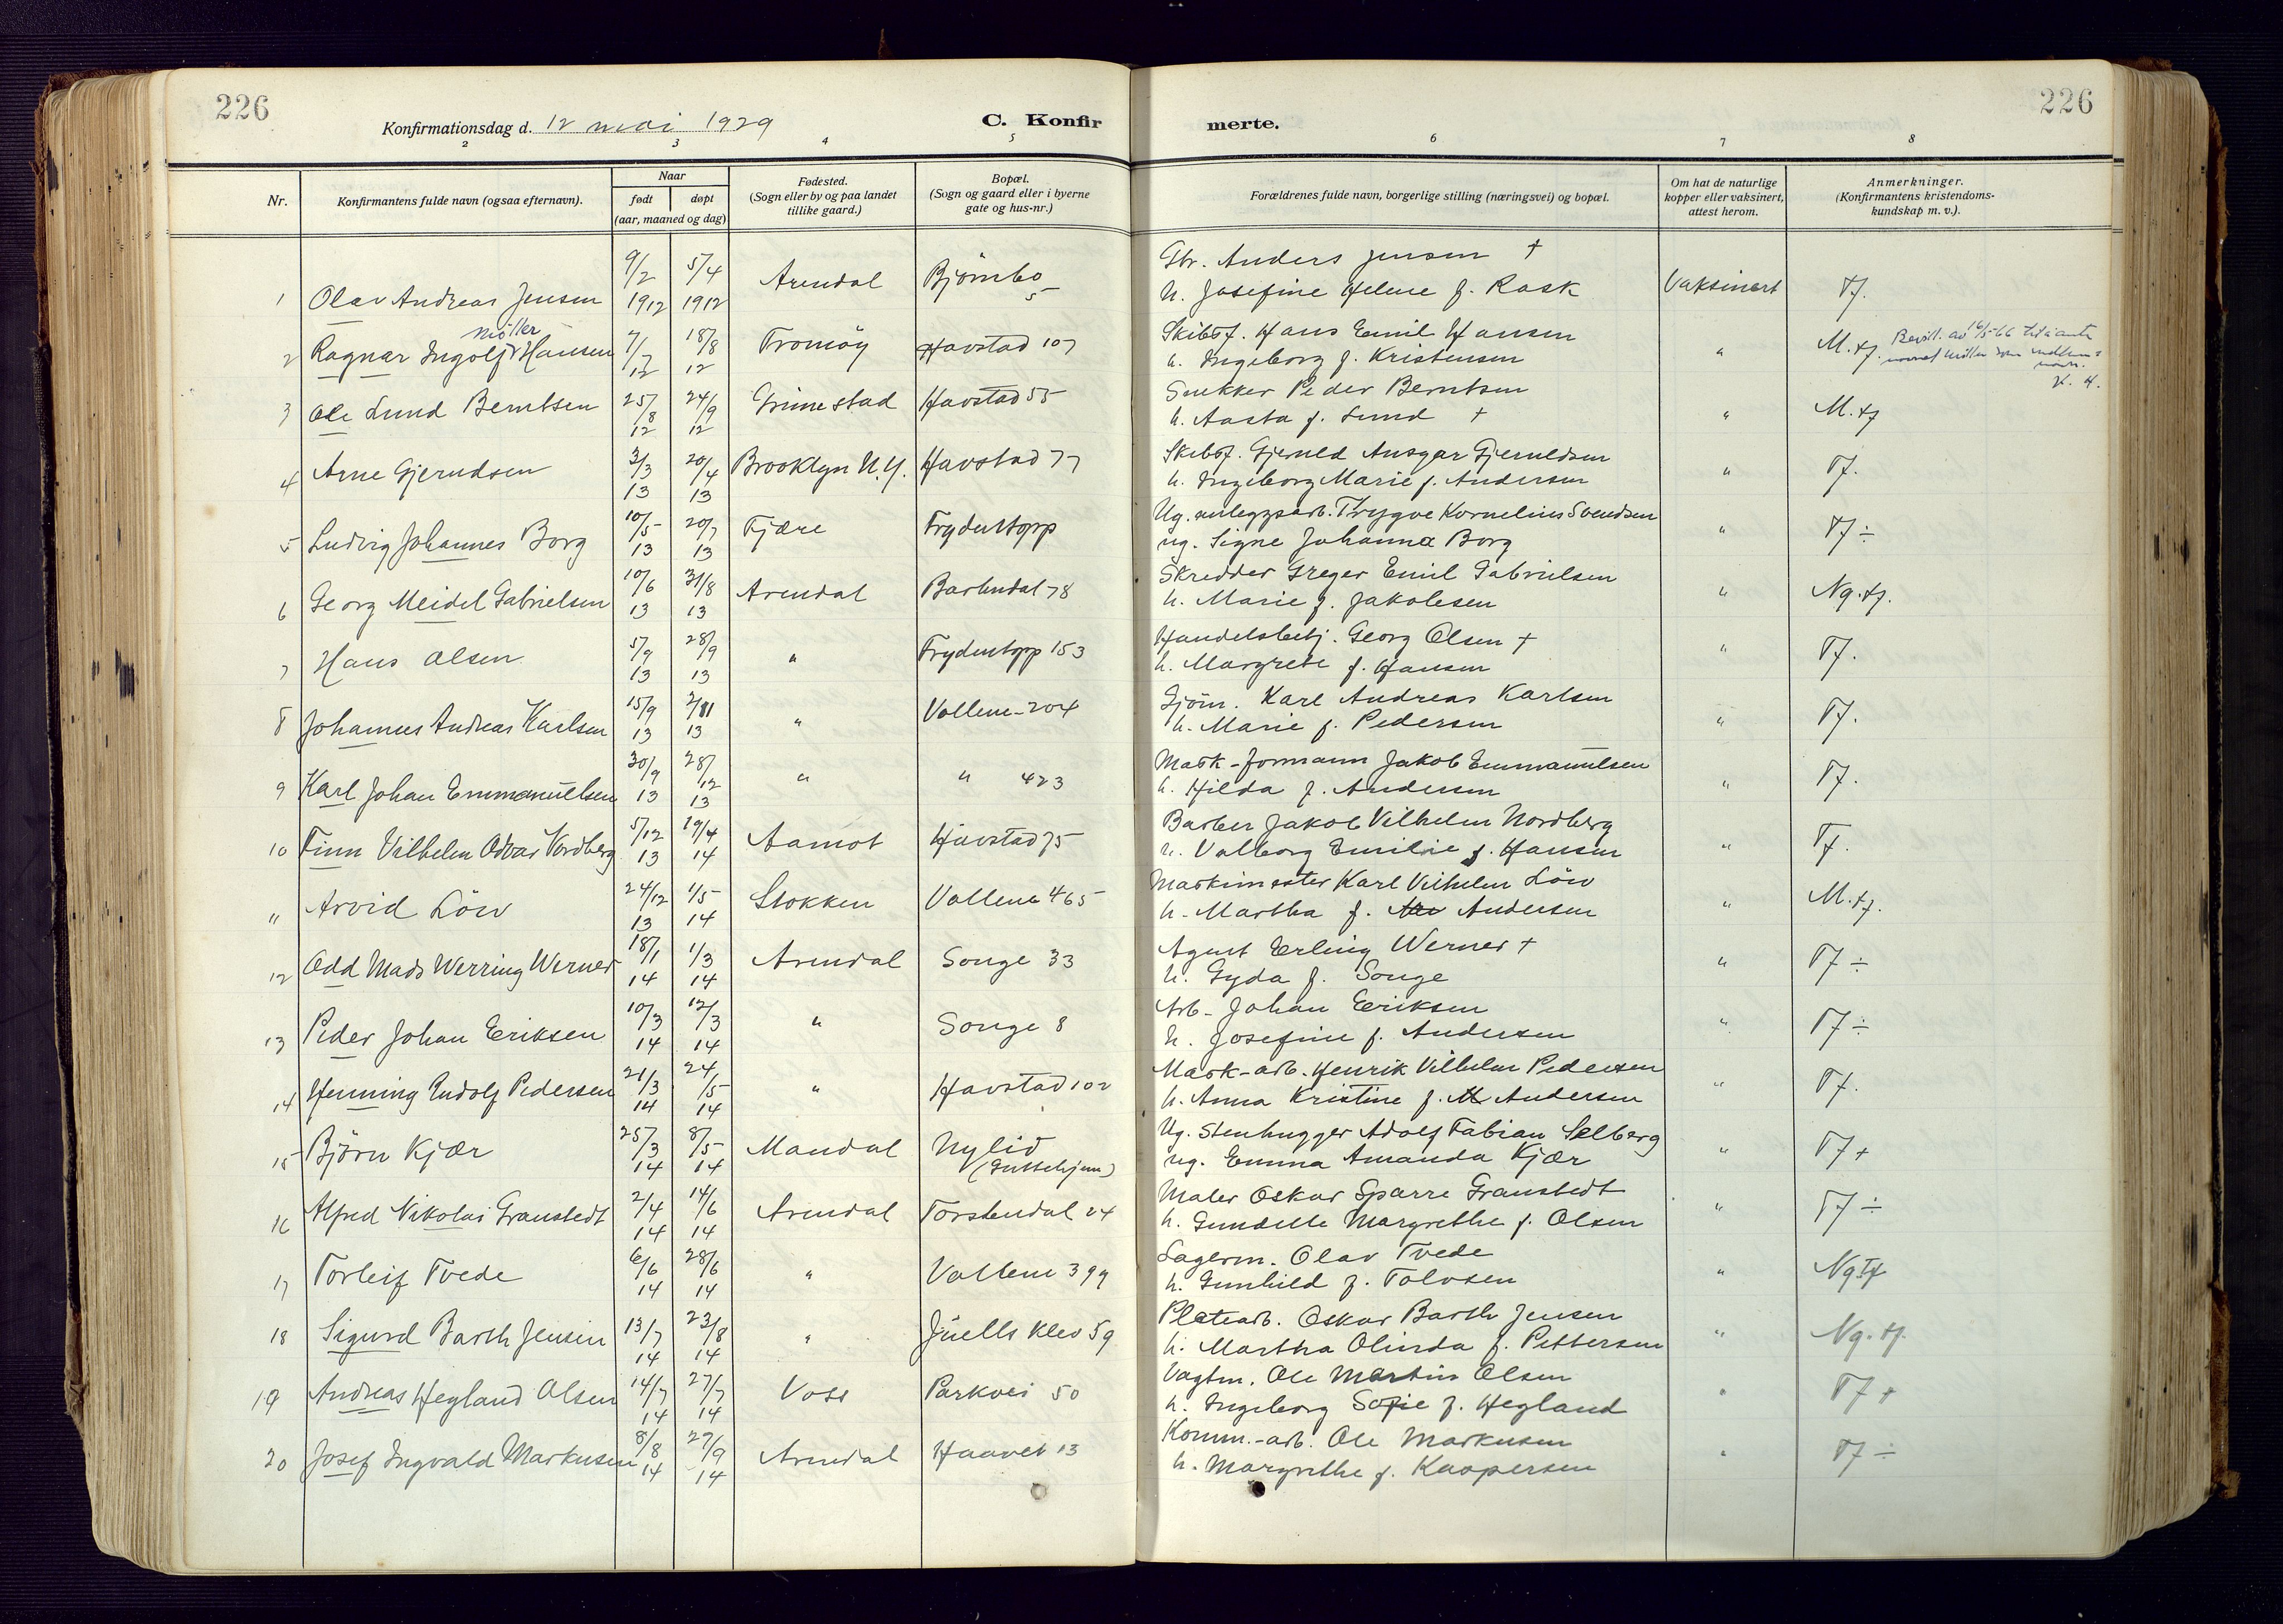 226
226
Konfirmationsdag d. 12 mai 1929
C. Konfir
merte.
2 3 4 5 6 7 8
Nr.
Konfirmantens fulde navn (ogsaa efternavn).
Naar
født
døpt
(aar, maaned og dag)
Fødested.
(Sogn eller by og paa landet
tillike gaard.)
Bopæl.
(Sogn og gaard eller i byerne
gate og hus-nr.)
Forældrenes fulde navn, borgerlige stilling (næringsvei) og bopæl.
Om hat de naturlige
kopper eller vaksinert,
attest herom.
Anmerkninger.
(Konfirmantens kristendoms-
kundskap m. v.).
9/2 5/4 Gbr. Anders Jensen †
1 Olav Andreas Jensen 1912 1912 Arendal Björnbo 5 h. Josefine Helene f. Rask Vaksinert Tf.
Möller
2 Ragnar Ingolf Hansen 7/7 12 18/8 12 Tromøy Havstad 107 Skibsf. Hans Emil Hansen
h. Ingeborg f. Kristensen " M.tf.
3 Ole Lund Berntsen 25/8 12 24/9 12 Grimestad Havstad 55 Snekker Peder Berntsen
h. Aasta f. Lund † " M.tf
4 Arne Gjerudsen 3/3 13 20/4 13 Brooklyn N.Y. Havstad 77 Skibsf. Gjeruld Ansgar Gjeruldsen
h. Ingeborg Marie f. Andersen " Tf.
5 Ludvig Johannes Borg 10/5 13 20/7 13 Fjære Frydentopp Ug. anleggsarb. Trygve Kornelius Svendsen
ug. Signe Johanna Borg " Tf ÷
6 Georg Meidel Gabrielsen 10/6 13 31/8 13 Arendal Barbudal 78 Skredder Greger Emil Gabrielsen
h. Marie f. Jakobsen " Ng.tf.
7 Hans Olsen 5/9 13 28/9 13 " Frydentopp 153 Handelsbetj. Georg Olsen †
h. Margrete f. Hansen " Tf.
8 Johannes Andreas Karlsen 15/9 13 2/11 13 " Vollene 204 Sjöm. Karl Andreas Karlsen
h. Marie f. Pedersen " Tf.
9 Karl Johan Emmanuelsen 30/9 13 28/12 13 " " 423 Mask-formann Jakob Emmanuelsen
h. Hilda f. Andersen " Tf.
10 Finn Vilhelm Odvar Nordberg 5/12 13 19/4 14 Aamot Havstad 75 Barber Jakob Vilhelm Nordberg
h. Valborg Emilie f. Hansen " Tf.
11 Arvid Löw 24/12 13 1/5 14 Stokken Vollene 465 Maskinmester Karl Vilhelm Löw
h. Martha f. Andersen " M.tf.
12 Odd Mads Werring Werner 18/1 14 1/3 14 Arendal Songe 33 Agent Erling Werner †
h. Gyda f. Songe " Tf ÷
13 Peder Johan Eriksen 10/3 14 12/3 14 " Songe 8 Arb. Johan Eriksen
h. Josefine f. Andersen " Tf ÷
14 Henning Rudolf Pedersen 21/3 14 24/5 14 " Havstad 102 Mask-arb. Henrik Vilhelm Pedersen
h. Anna Kristine f. Andersen " Tf.
15 Björn Kjær 25/3 14 8/5 14 Mandal Nylid
(Guttehjem) Ug. Stenhugger Adolf Fabian Selberg
ug. Emma Amanda Kjær " Tf +
16 Alfred Nikolai Granstedt 2/4 14 14/6 14 Arendal Torstendal 24 Maler Oskar Sparre Granstedt
h. Gundelle Margrethe f. Olsen " Tf ÷
17 Torleif Tvede 6/6 14 28/6 14 " Vollene 399 Lagerm. Olav Tvede
h. Gunhild f. Tolvsen " Ng Tf
18 Sigurd Barth Jensen 13/7 14 23/8 14 " Juells Klev 59 Platearb. Oskar Barth Jensen
h. Martha Olinda f. Pettersen " Ng. tf.
19 Andreas Hegland Olsen 14/7 14 27/7 14 Voss Parkvei 50 Vagtm. Ole Martin Olsen
h. Ingeborg Sofie f. Hegland " Tf +
20 Josef Ingvald Markusen 8/8 14 27/9 14 Arendal Haavet 13 Komm.-arb. Ole Markusen
h. Margrethe f. Kaspersen " Tf ÷